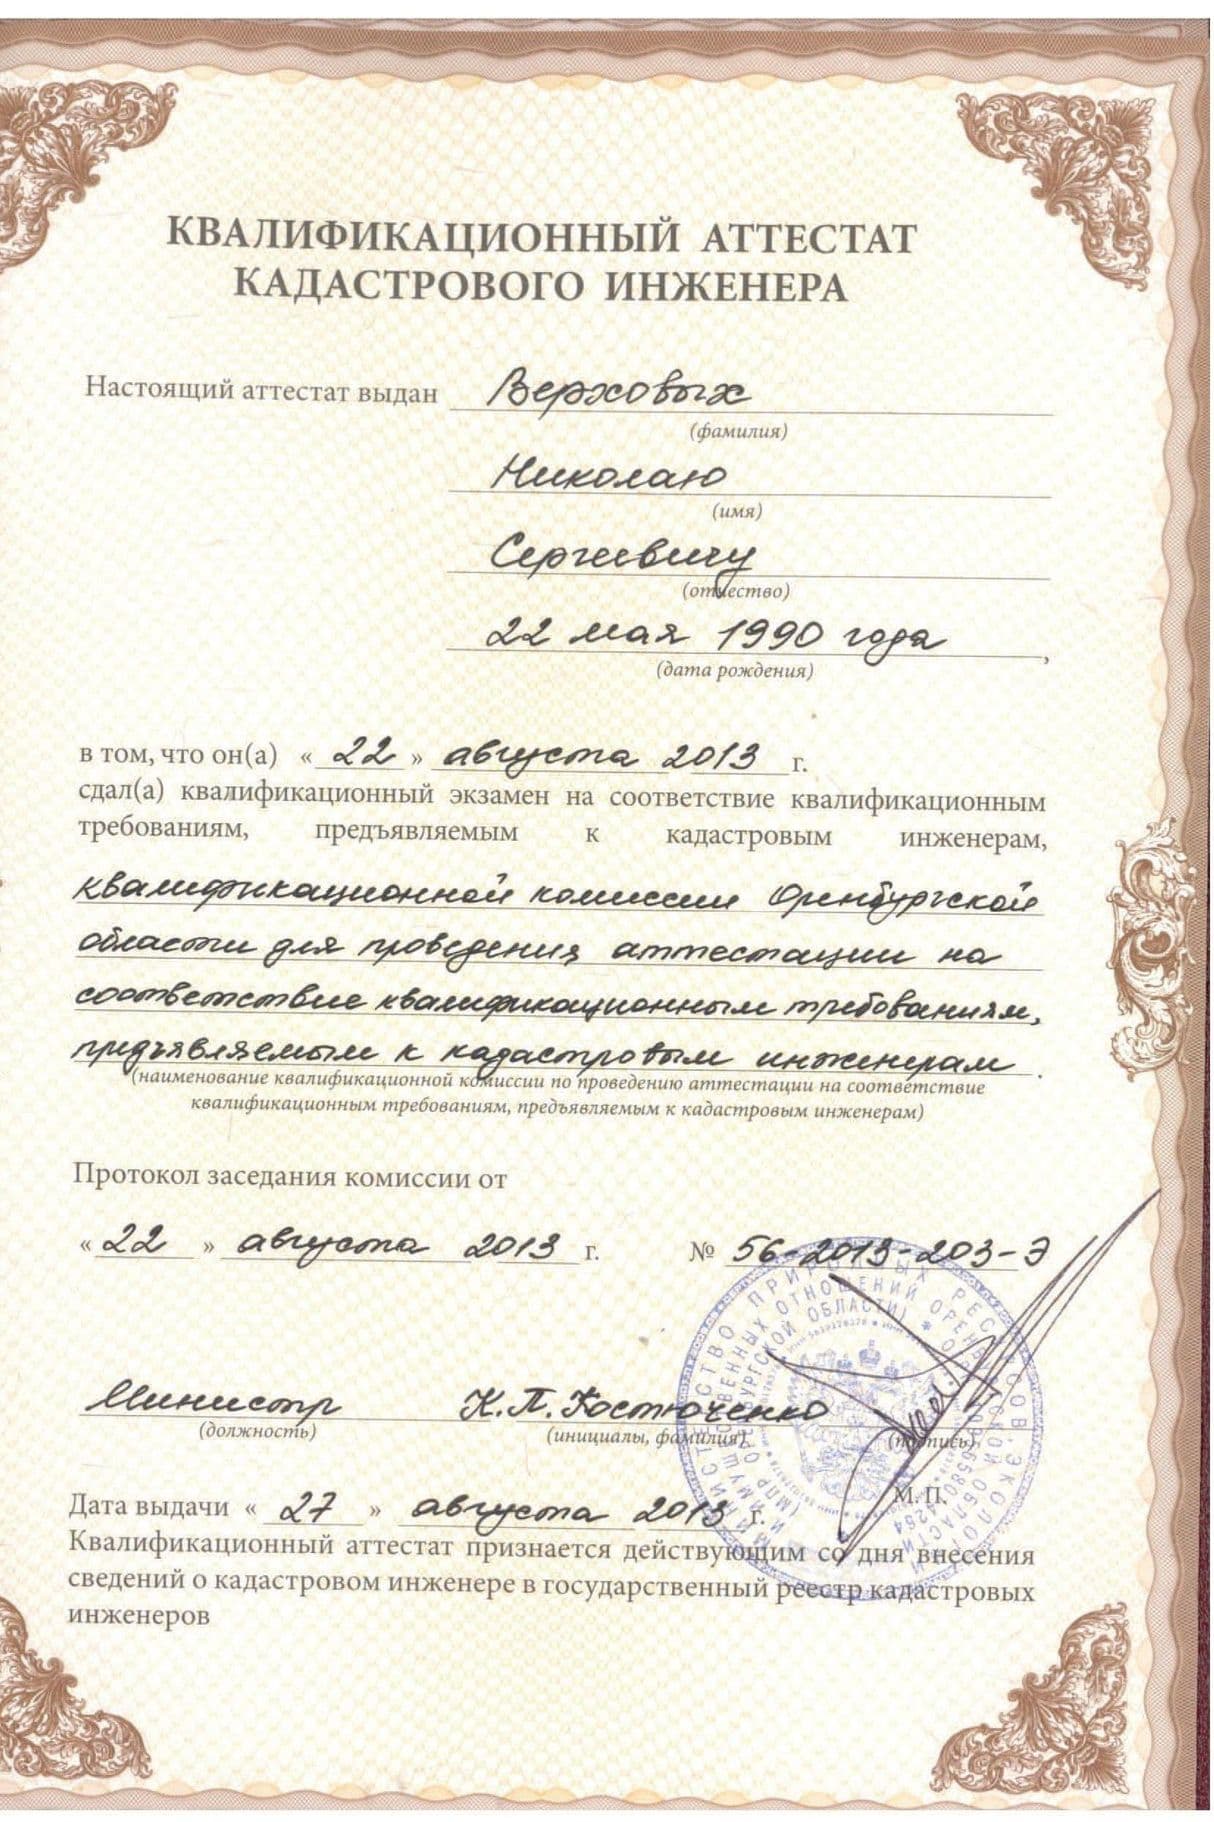 КВАЛИФИКАЦИОННЫЙ АТТЕСТАТ
КАДАСТРОВОГО ИНЖЕНЕРА
Настоящий аттестат выдан Верховых
(фамилия)
Николаю
(имя)
Сергеевичу
(отчество)
22 мая 1990 года,
(дата рождения)
в том, что он(а) «22» августа 2013 г.
сдал(а) квалификационный экзамен на соответствие квалификационным
требованиям, предъявляемым к кадастровым инженерам,
квалификационной комиссии Оренбургской
области для проведения аттестации на
соответствие квалификационным требованиям,
предъявляемым к кадастровым инженерам.
(наименование квалификационной комиссии по проведению аттестации на соответствие
квалификационным требованиям, предъявляемым к кадастровым инженерам)
Протокол заседания комиссии от
«22» августа 2013 г. № 56-2013-203-Э
Министр К.П. Костюченко
(должность) (инициалы, фамилия) (подпись)
М.П.
Дата выдачи «27» августа 2013 г.
Квалификационный аттестат признается действующим со дня внесения
сведений о кадастровом инженере в государственный реестр кадастровых
инженеров